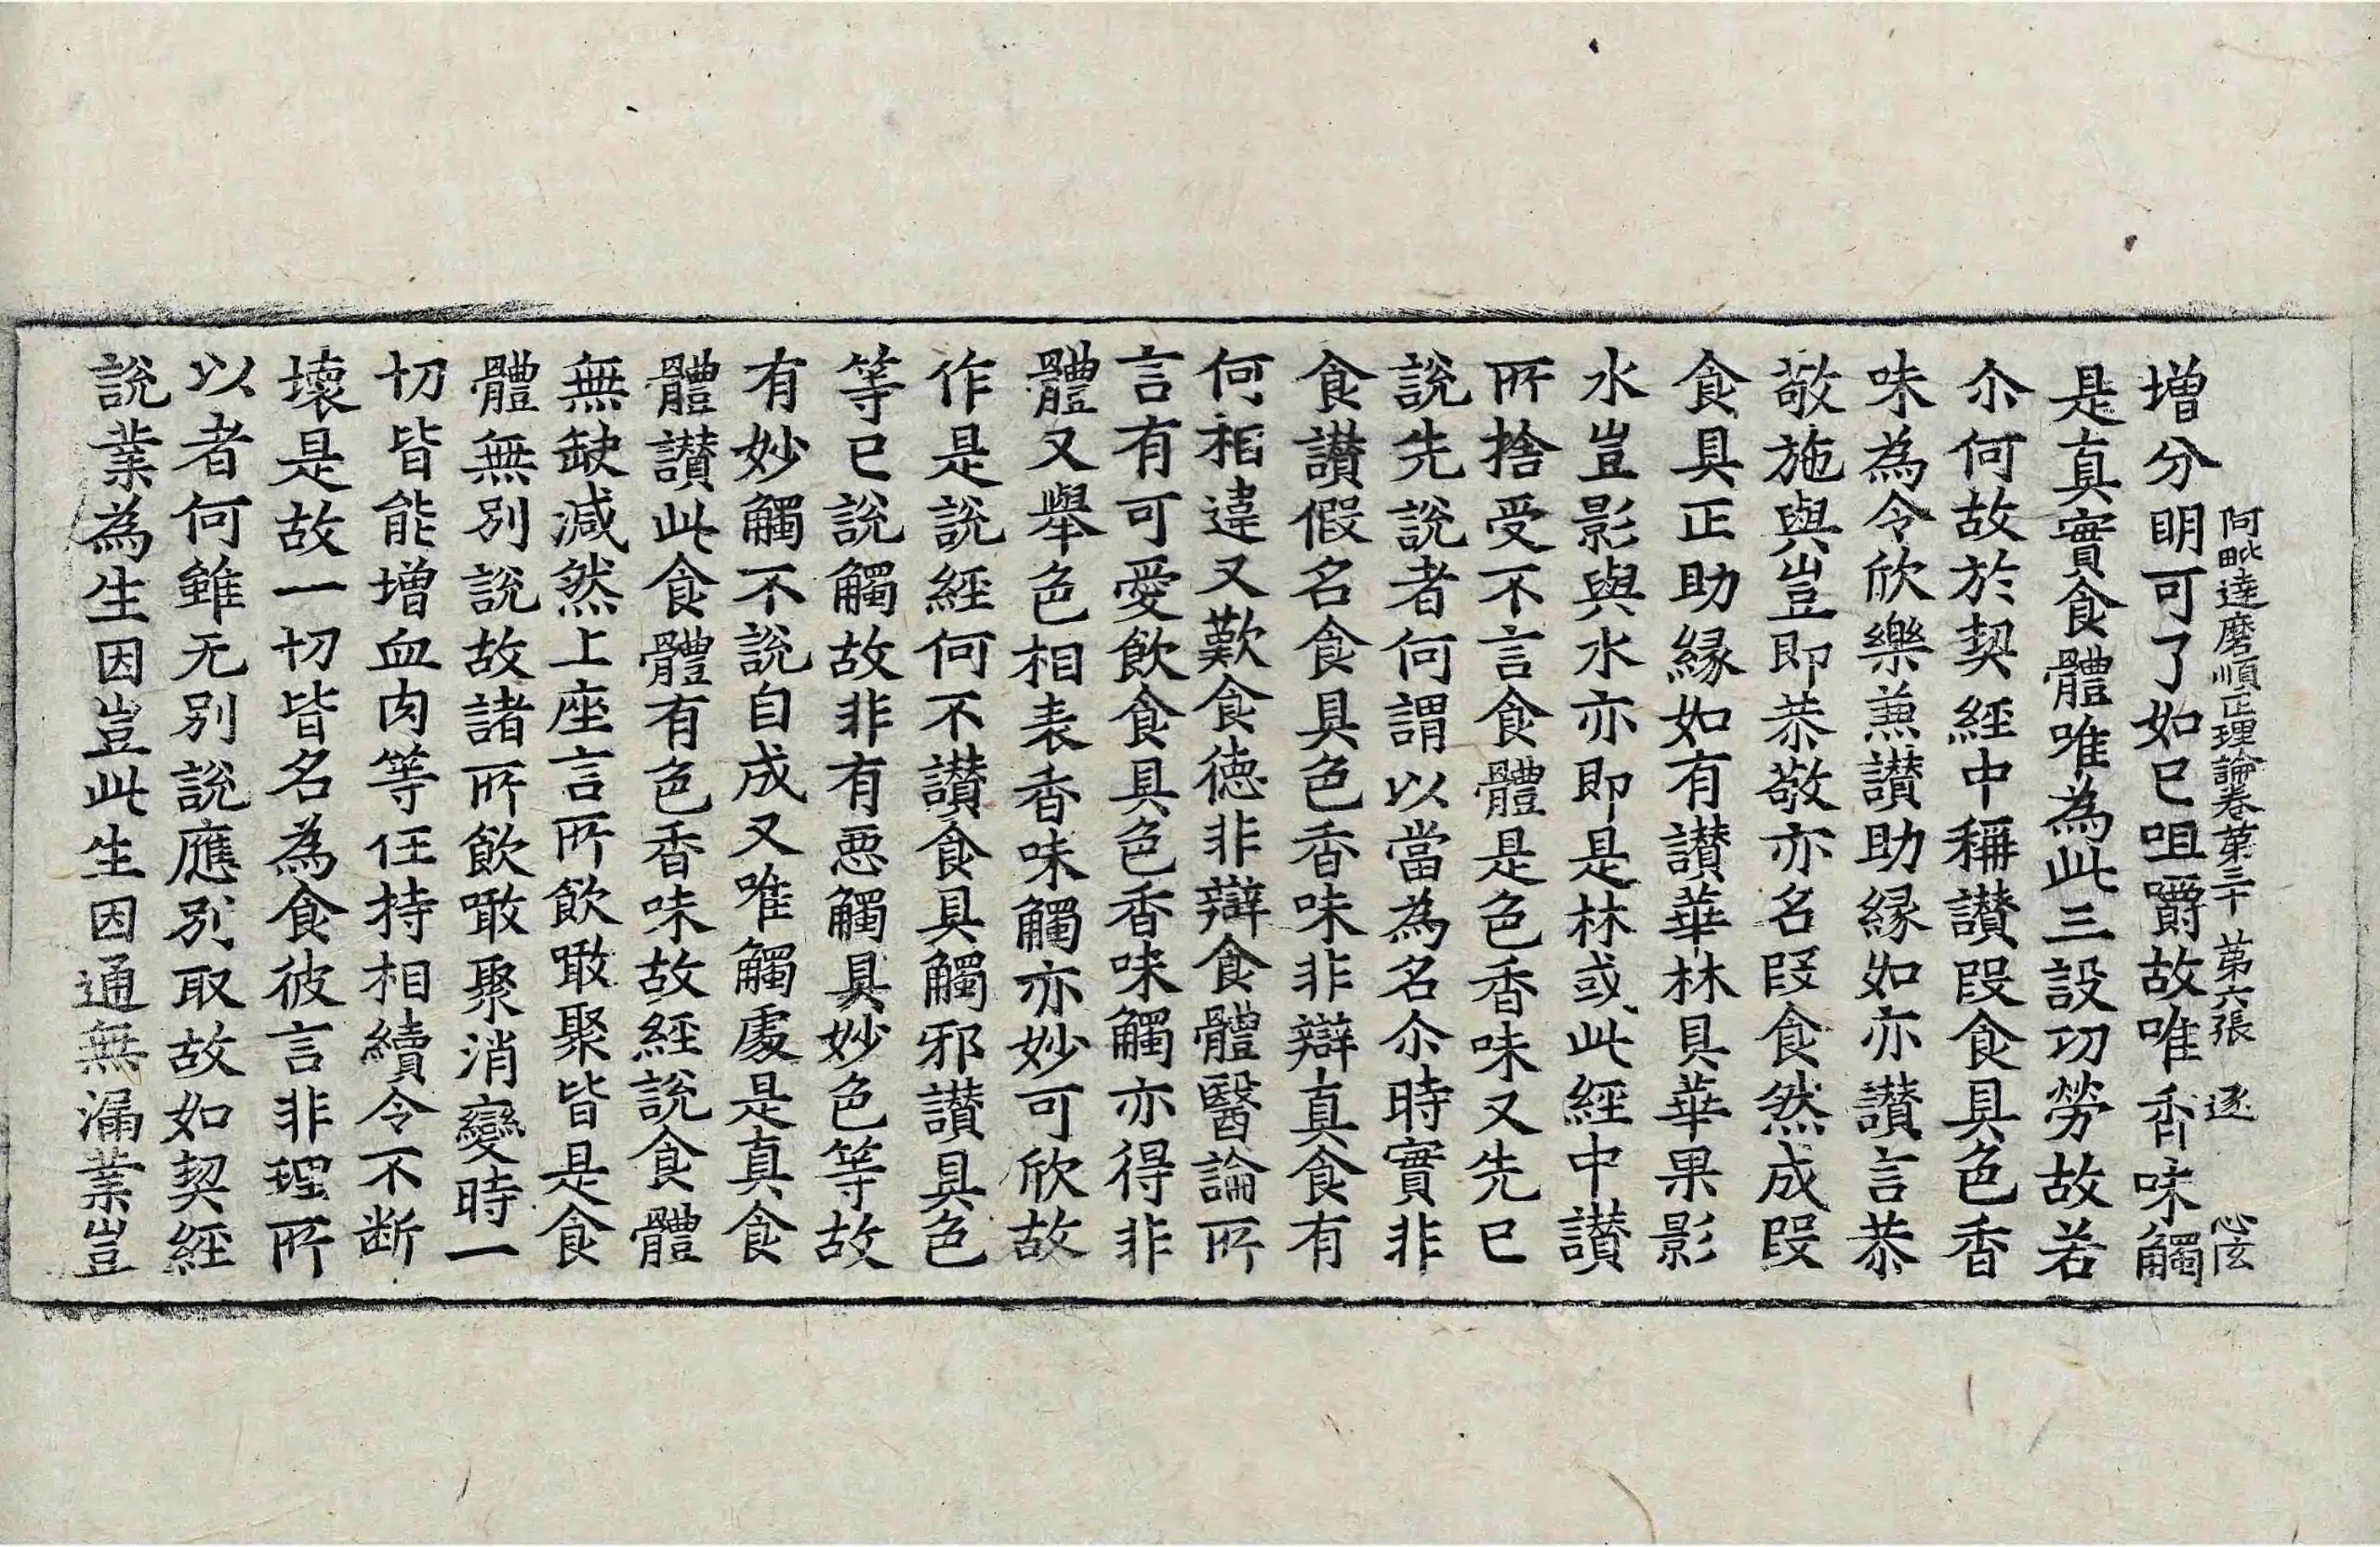 阿毗達磨順正理論卷第三十 第六張 逐
增分明可了如已咀嚼故唯香味觸
是真實食體唯為此三設功勞故若
尒何故於契經中稱讃段食具色香
味為令欣樂兼讃助縁如亦讃言恭
敬施與豈即恭敬亦名段食然成段
食具正助縁如有讃華林具華果影
水豈影與水亦即是林或此經中讃
所捨受不言食體是色香味又先已
說先說者何謂以當為名尒時實非
食讃假名食具色香味非辯真食有
何相違又歎食德非辯食體醫論所
言有可愛飲食具色香味觸亦得非
體又舉色相表香味觸亦妙可欣故
作是說經何不讃食具觸邪讃具色
等已說觸故非有惡觸具妙色等故
有妙觸不說自成又唯觸處是真食
體讃此食體有色香味故經說食體
無缺減然上座言所飲噉聚皆是食
體無別說故諸所飲噉聚消變時一
切皆能增血肉等任持相續令不断
壞是故一切皆名為食彼言非理所
以者何雖无別說應別取故如契經
說業為生因豈此生因通無漏業豈